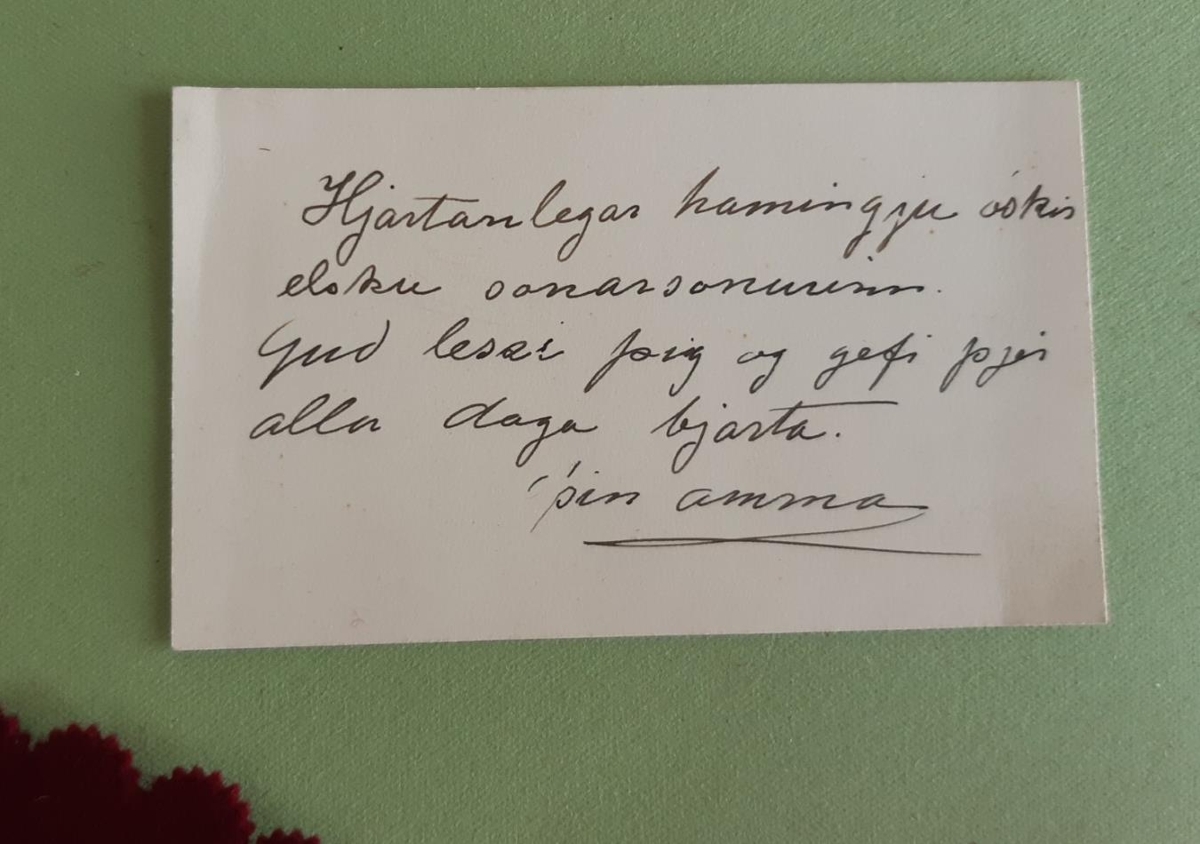 Hjartanlegar hamingju óskir
elsku sonarsonurinn.
Guð blessi þig og gefi þjer
alla daga bjarta.
þín amma